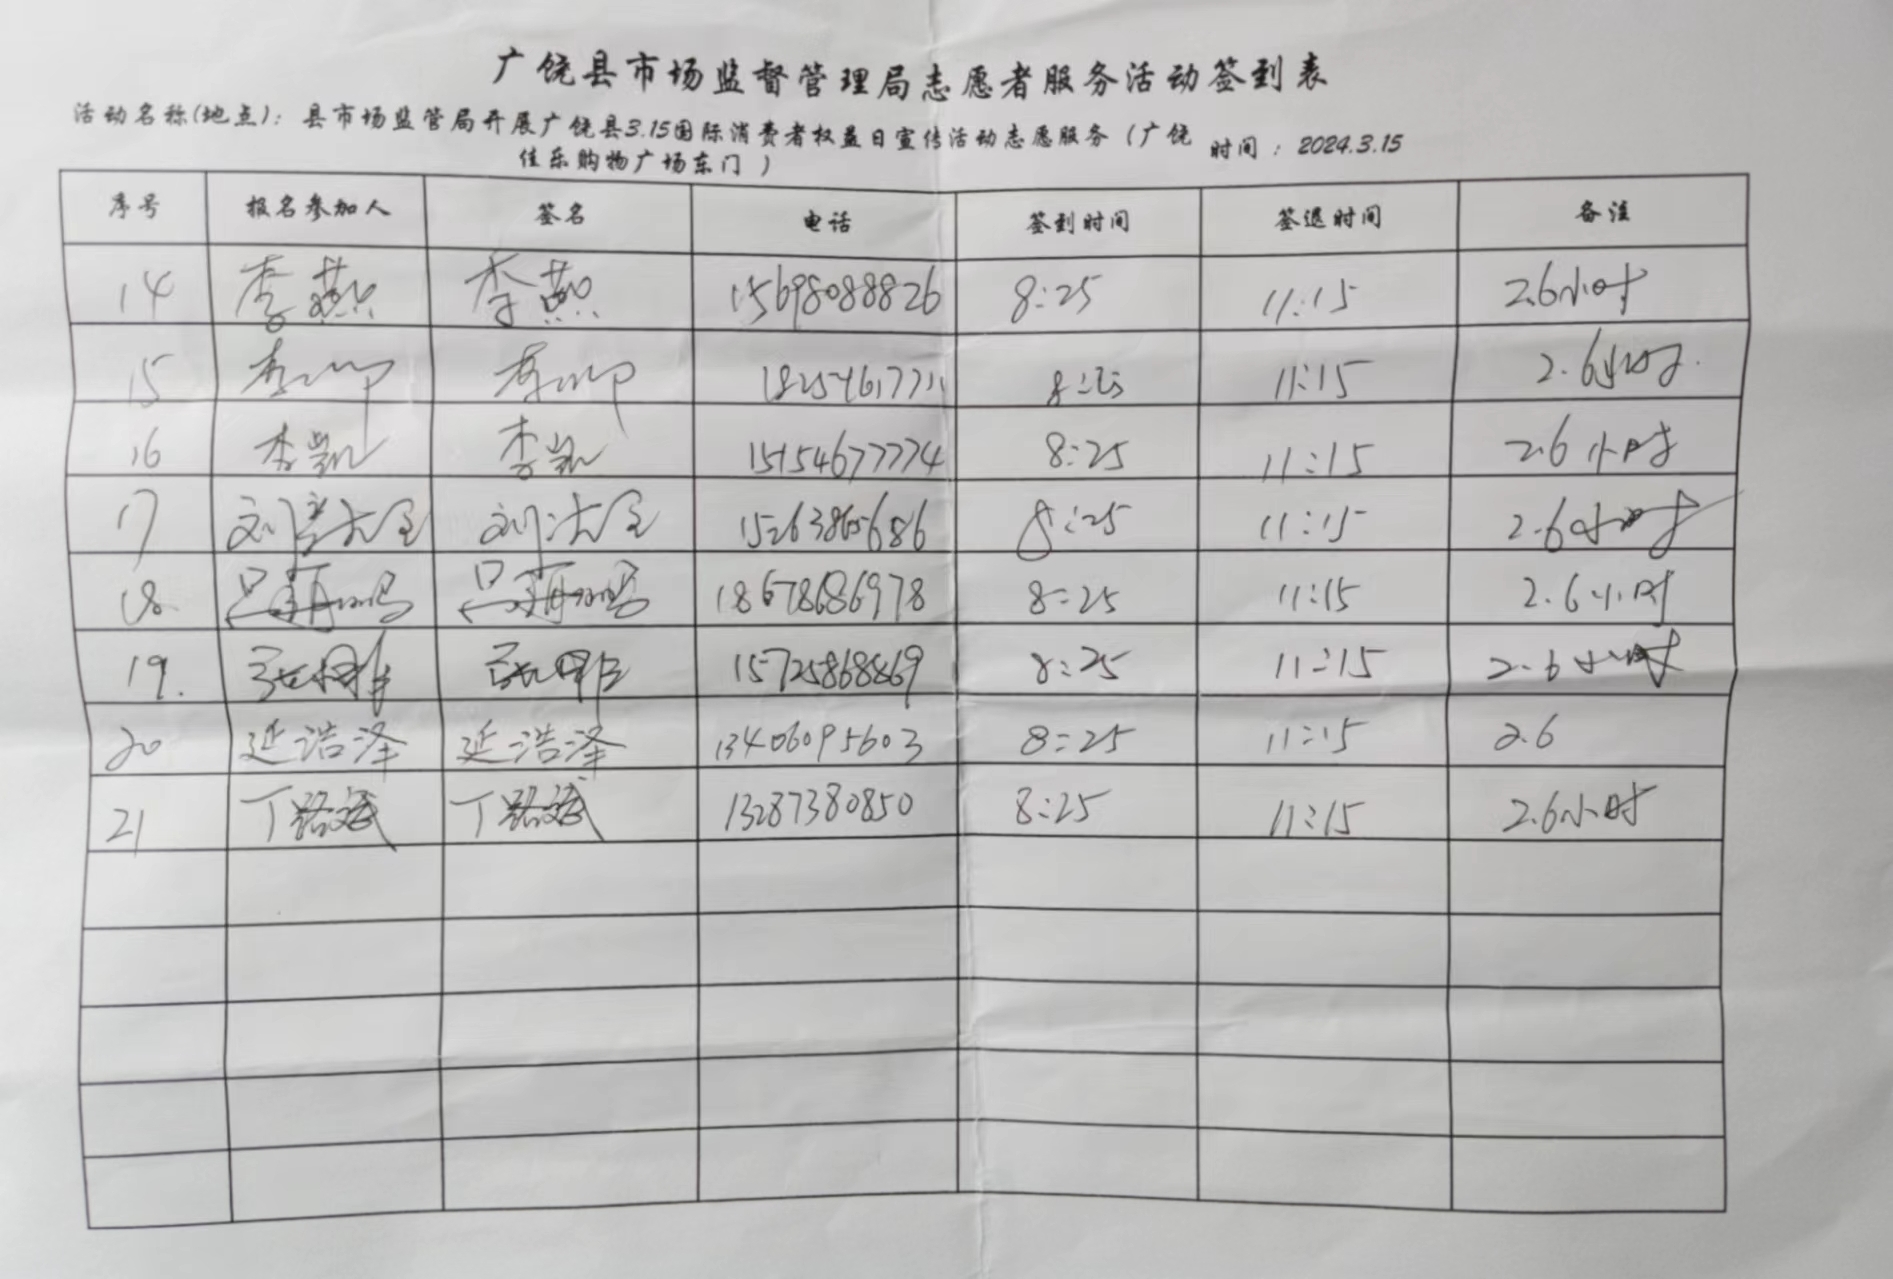 广饶县市场监督管理局志愿者服务活动签到表
活动名称(地点)：县市场监管局开展广饶县3.15国际消费者权益日宣传活动志愿服务（广饶 时间：2024.3.15
佳乐购物广场东门）
序号 报名参加人 签名 电话 签到时间 签退时间 备注
14 李燕 李燕 15698088826 8:25 11:15 2.6小时
15 8:25 11:15 2.6小时.
16 李凯 李凯 15154677774 8:25 11:15 2.6小时
17 刘 刘 15263865686 8:25 11:15 2.6小时
18. 吕 吕 18678686978 8:25 11:15 2.6小时
19. 张 张 15725868869 8:25 11:15 2.6小时
20 延浩泽 延浩泽 13406095603 8:25 11:15 2.6
21 丁路斌 丁路斌 13287380850 8:25 11:15 2.6小时